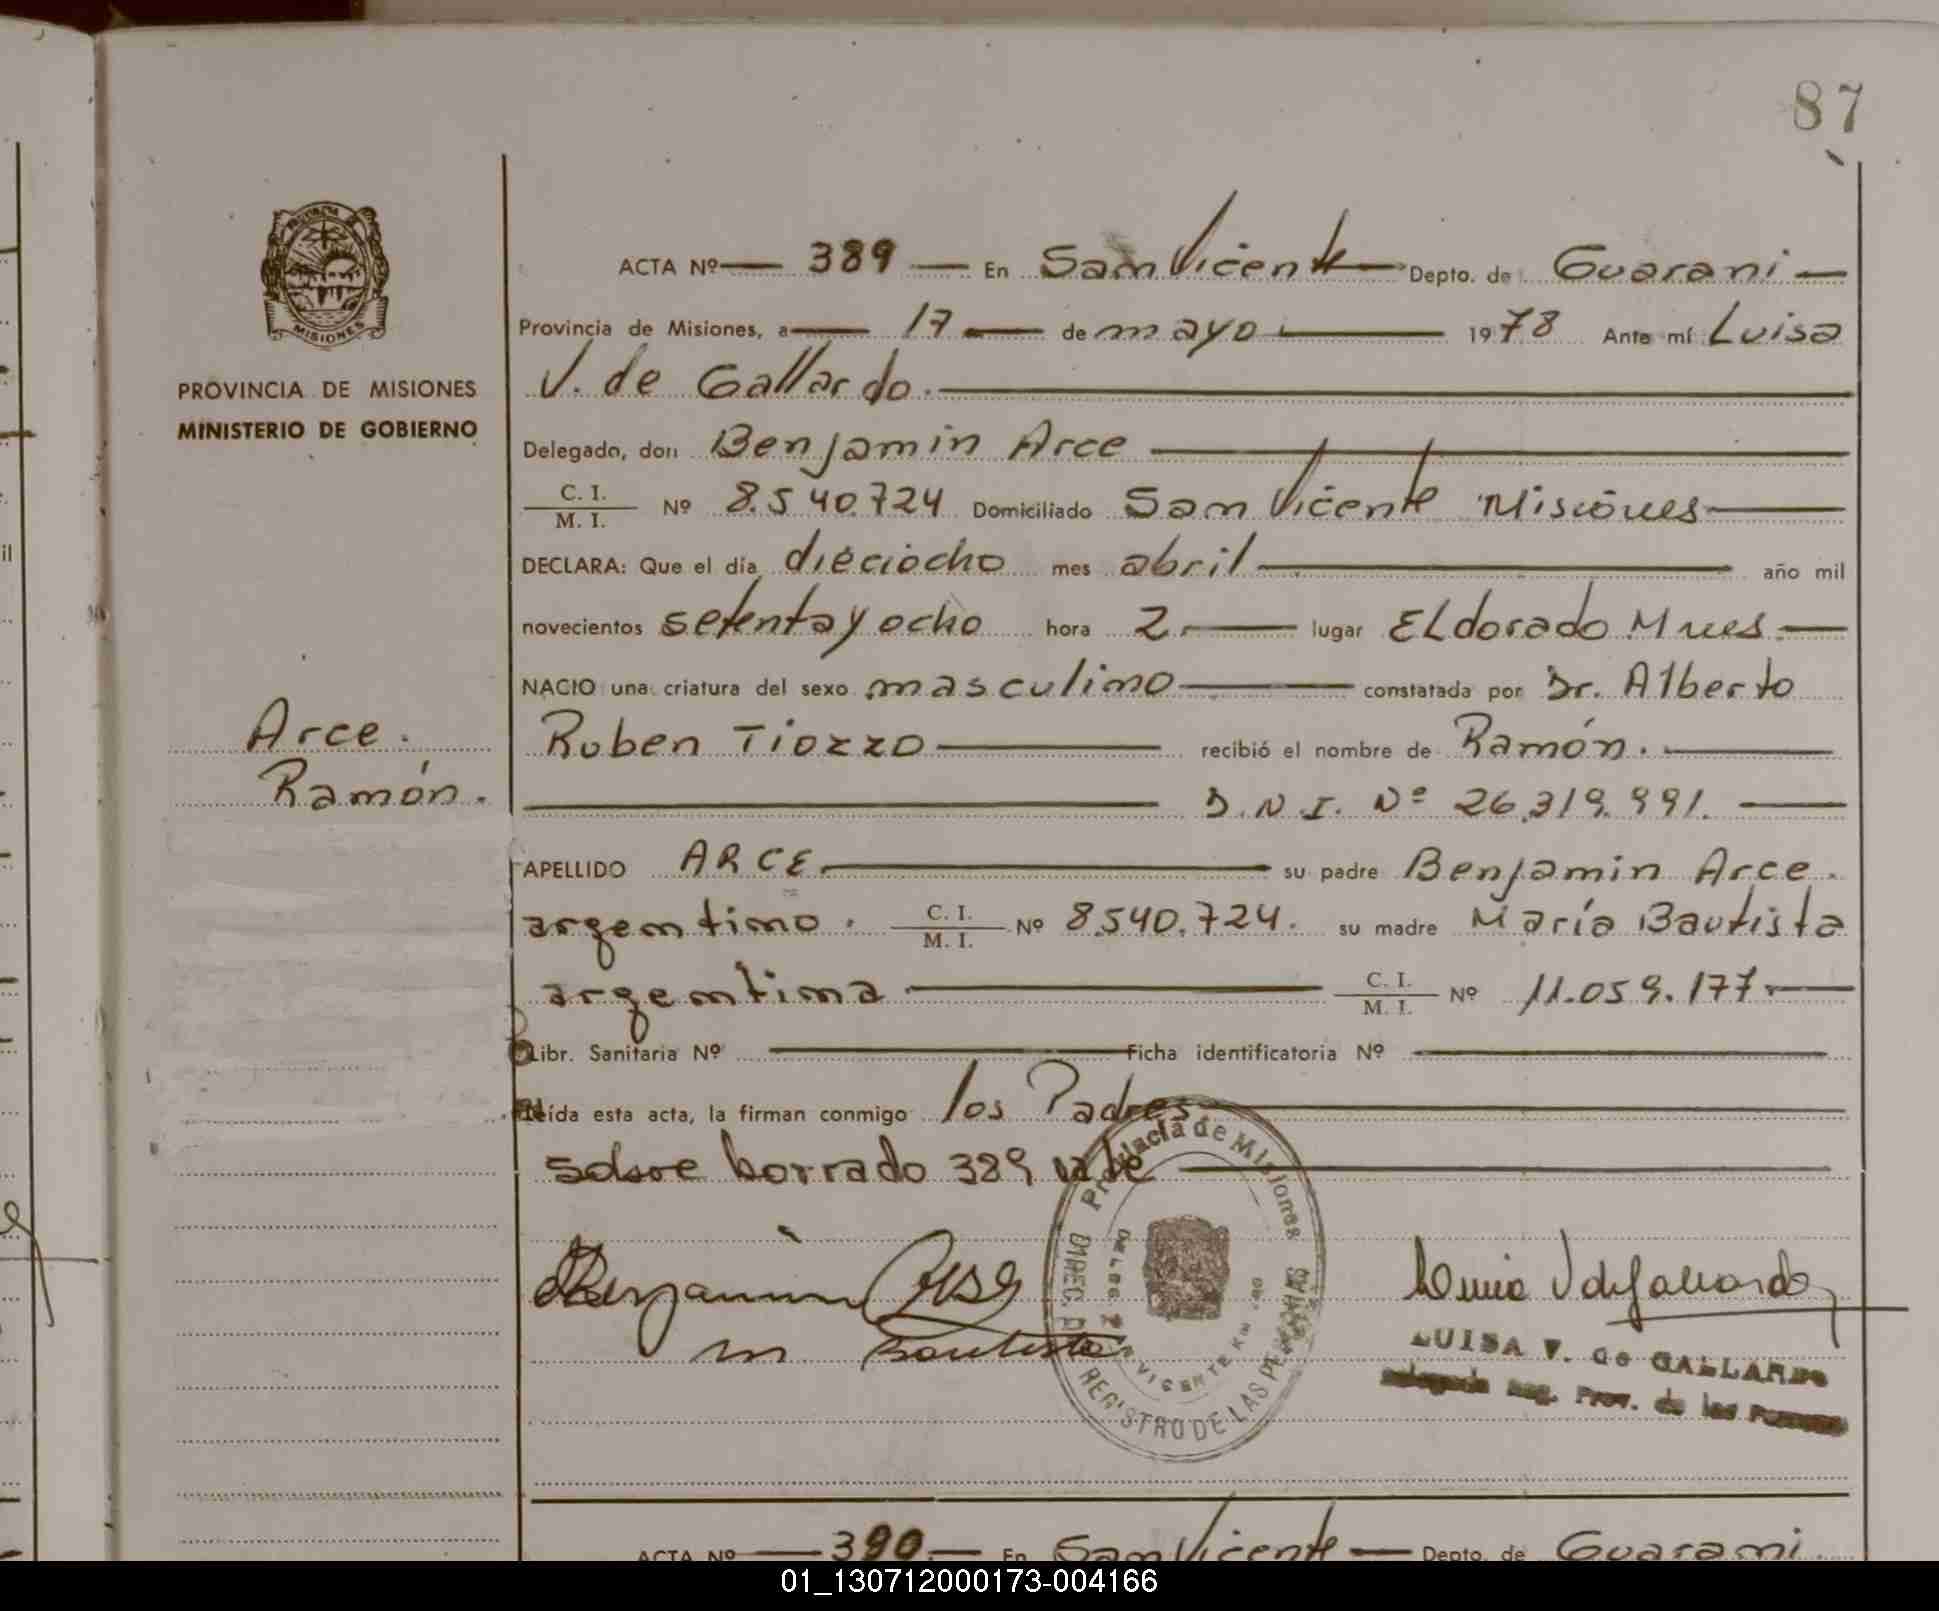 87
PROVINCIA DE MISIONES
MINISTERIO DE GOBIERNO
Arce.
Ramón.
ACTA Nº 389 En San Vicente Depto. de Guarani
Provincia de Misiones, a 17 de mayo 1978 Ante mí Luisa
V. de Gallardo.
Delegado, don Benjamin Arce
C. I.
M. I. Nº 8.540.724 Domiciliado San Vicente Misiones
DECLARA: Que el día dieciocho mes abril año mil
novecientos setenta y ocho hora 2. lugar ELdorado Mnes.
NACIO una criatura del sexo masculino constatada por Dr. Alberto
Ruben Tiozzo recibió el nombre de Ramón.
D.N.I. Nº 26.319.991.
APELLIDO ARCE su padre Benjamin Arce.
argentino. C. I.
M. I. Nº 8.540.724. su madre María Bautista
argentina C. I.
M. I. Nº 11.059.177
Libr. Sanitaria Nº Ficha identificatoria Nº
Leída esta acta, la firman conmigo los Padres
sobre borrado 389 vale
Benjamin Arce
m Bautista
Provincia de Misiones
REGISTRO DE LAS PE
SAN VICENTE
LUISA V. de GALLARDO
Prov. de las Personas
ACTA Nº 390 En San Vicente Depto. de Guarani.
01_130712000173-004166